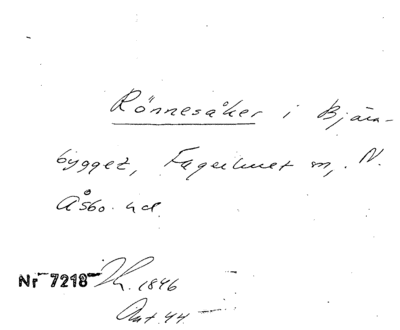 Rönnesåker i Bjära-
bygget, Fagerhult m, N.
Åsbo hd.
Nr 7218 Th. 1846
Ant 44